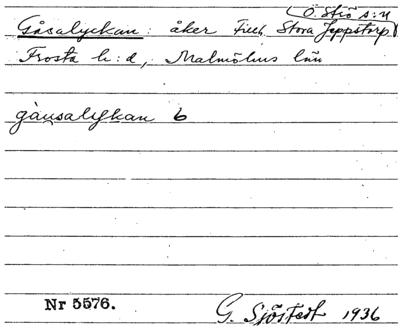 (Ö. Strö s:n
Gåsalyckan: åker till Stora Jeppstorp)
Frosta h:d, Malmöhus län
gåusalykan b
Nr 5576.
G. Sjöstedt 1936